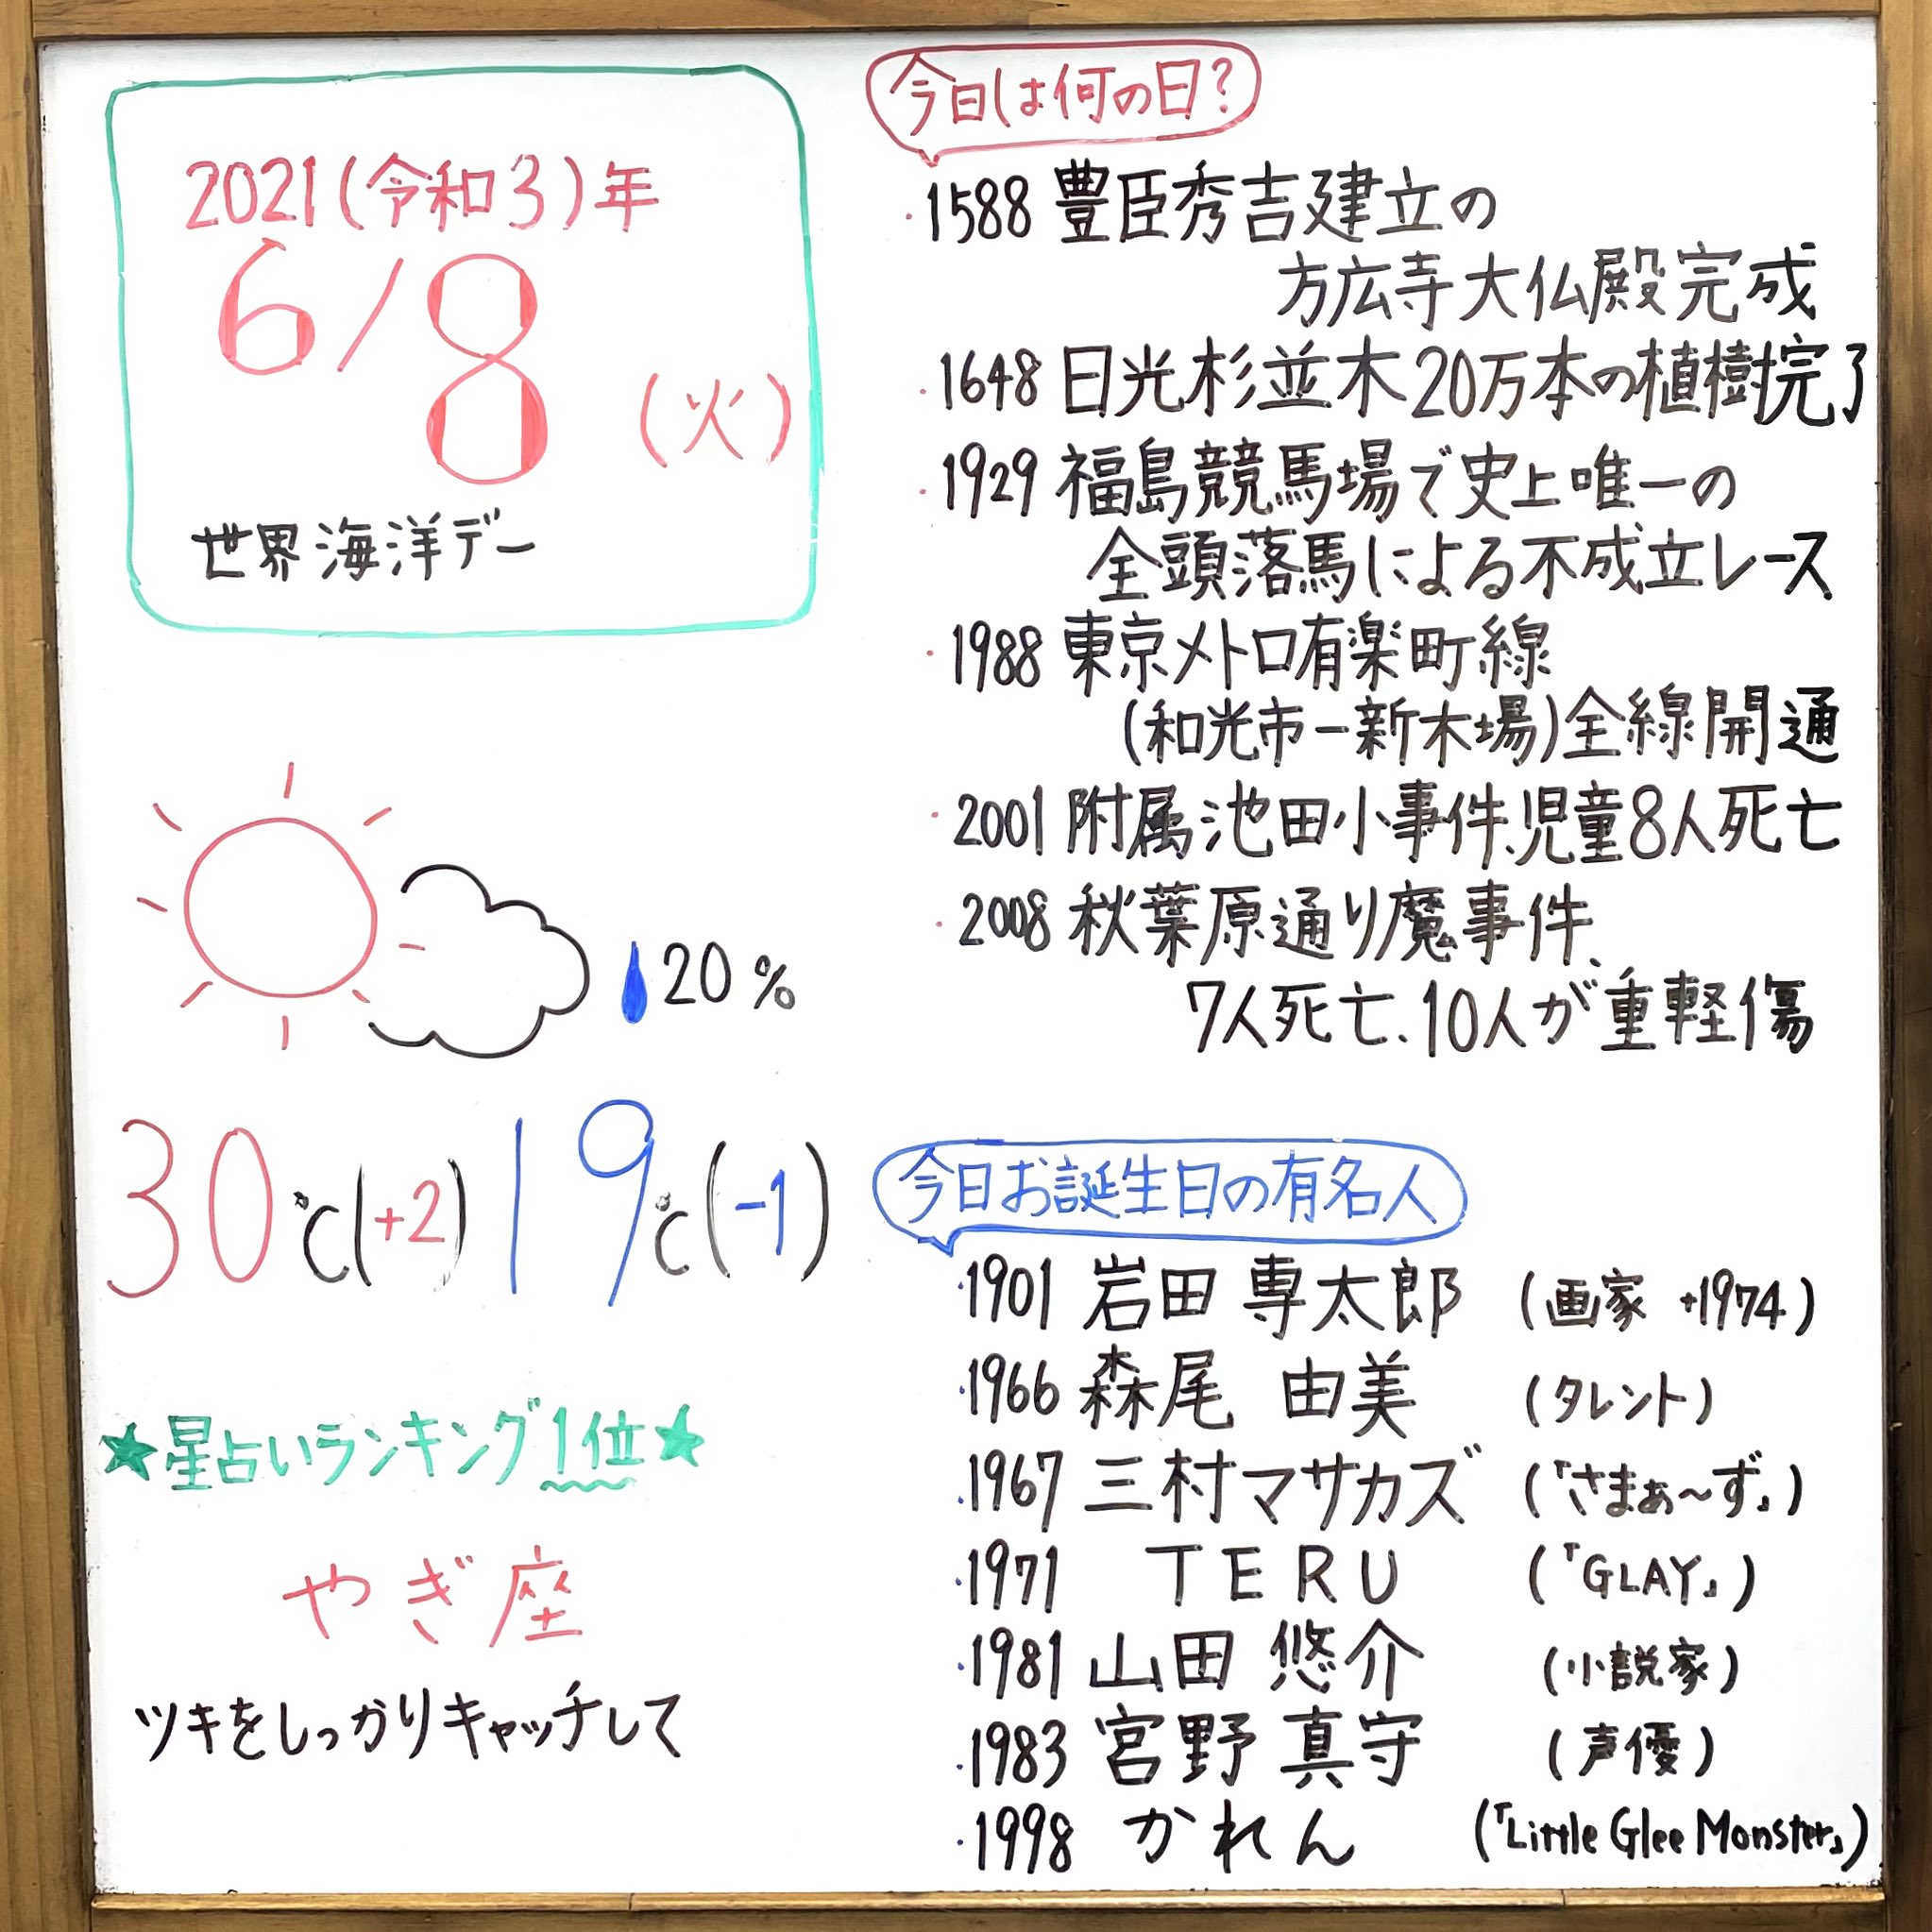 2021(令和3)年
6/8(火)
世界海洋デー
20%
30℃(+2) 19℃(-1)
★星占いランキング1位★
やぎ座
ツキをしっかりキャッチして
今日は何の日?
・1588 豊臣秀吉建立の
方広寺大仏殿完成
・1648 日光杉並木20万本の植樹完了
・1929 福島競馬場で史上唯一の
全頭落馬による不成立レース
・1988 東京メトロ有楽町線
(和光市ー新木場)全線開通
・2001 附属池田小事件、児童8人死亡
・2008 秋葉原通り魔事件、
7人死亡、10人が重軽傷
今日お誕生日の有名人
・1901 岩田 専太郎 (画家 +1974)
・1966 森尾 由美 (タレント)
・1967 三村マサカズ (「さまぁ〜ず」)
・1971 TERU (「GLAY」)
・1981 山田 悠介 (小説家)
・1983 宮野 真守 (声優)
・1998 かれん (「Little Glee Monster」)